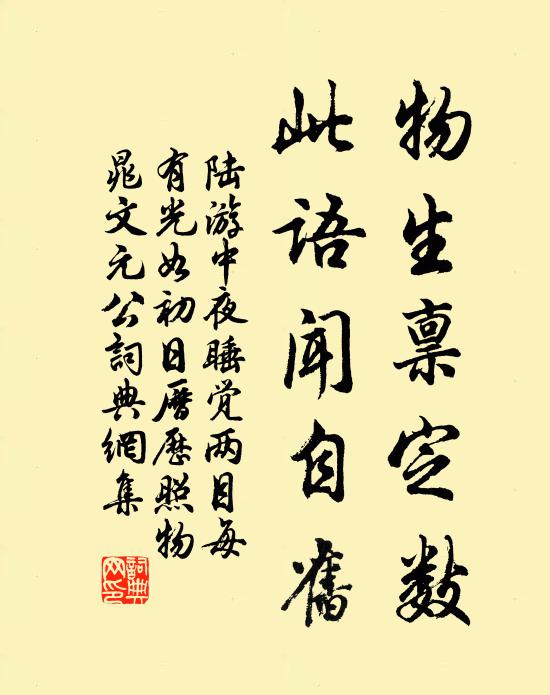 物生禀定数
此语闻自旧
陆游中夜睡觉两目每
有光如初日历历照物
晁文元公词典网集
词典网印